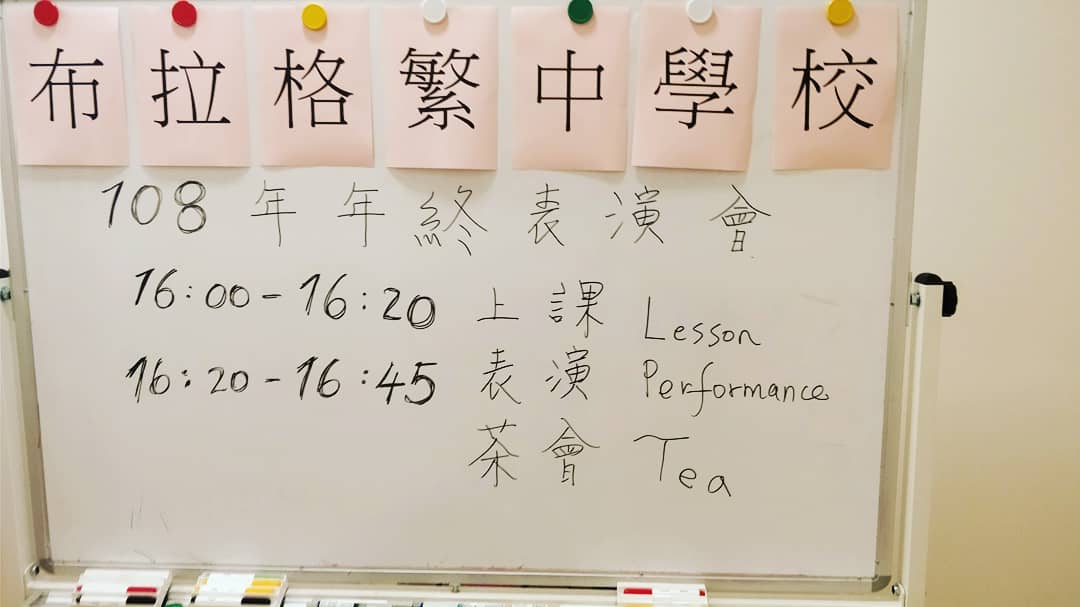 布拉格繁中學校
108 年年終表演會
16:00-16:20 上課 Lesson
16:20-16:45 表演 Performance
茶會 Tea